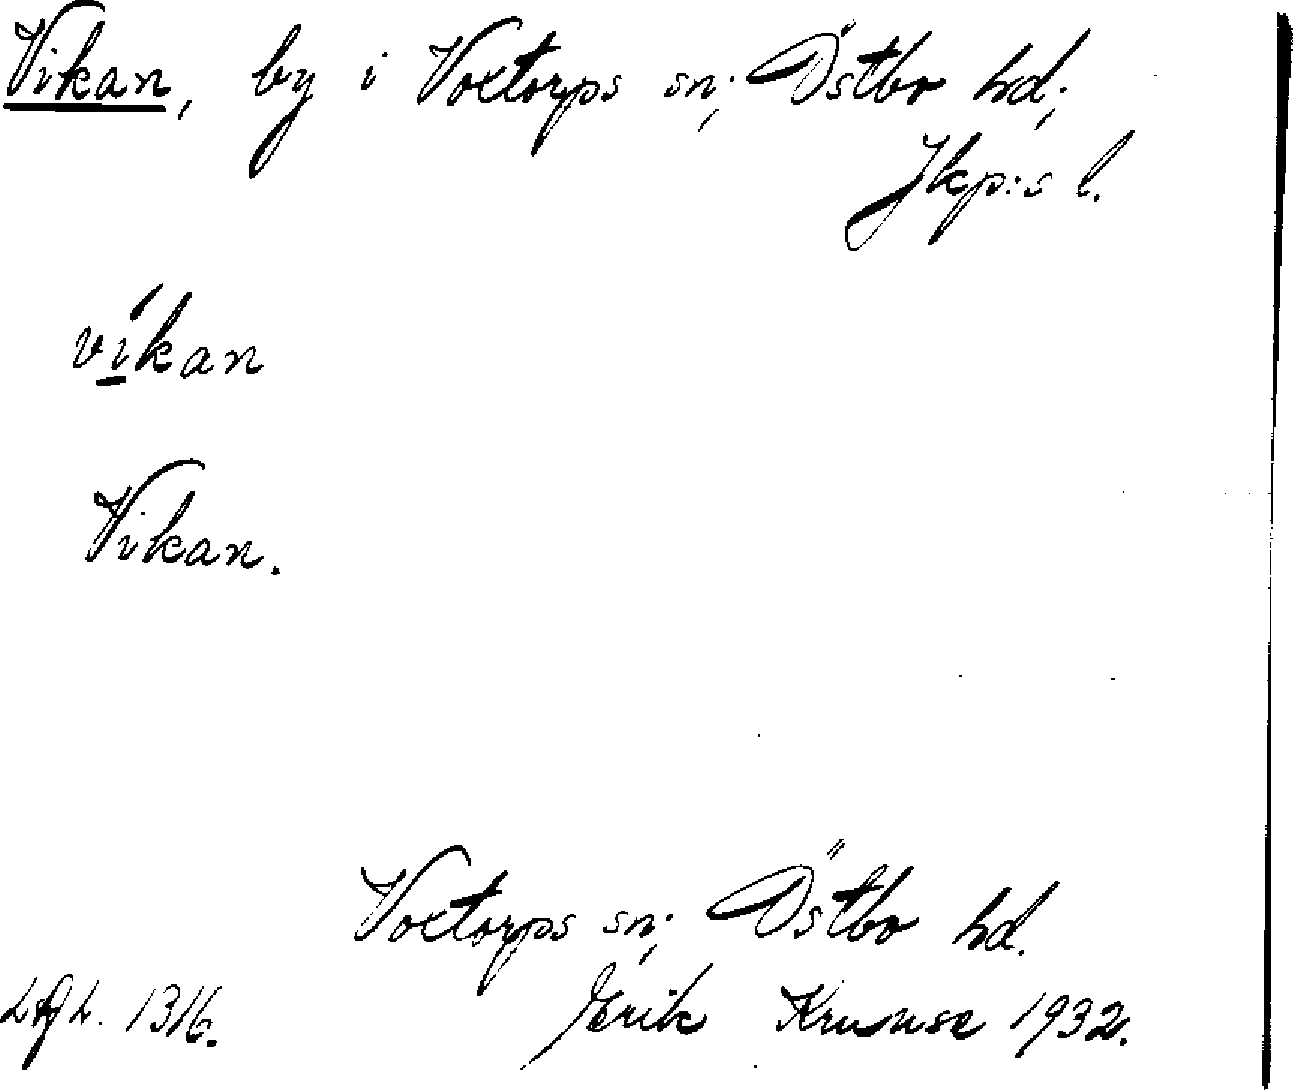 Vikan, by i Voxtorps sn; Östbo hd;
Jkp:s l.
víkan
Vikan.
Voxtorps sn; Östbo hd.
1316. Erik Kruuse 1932.